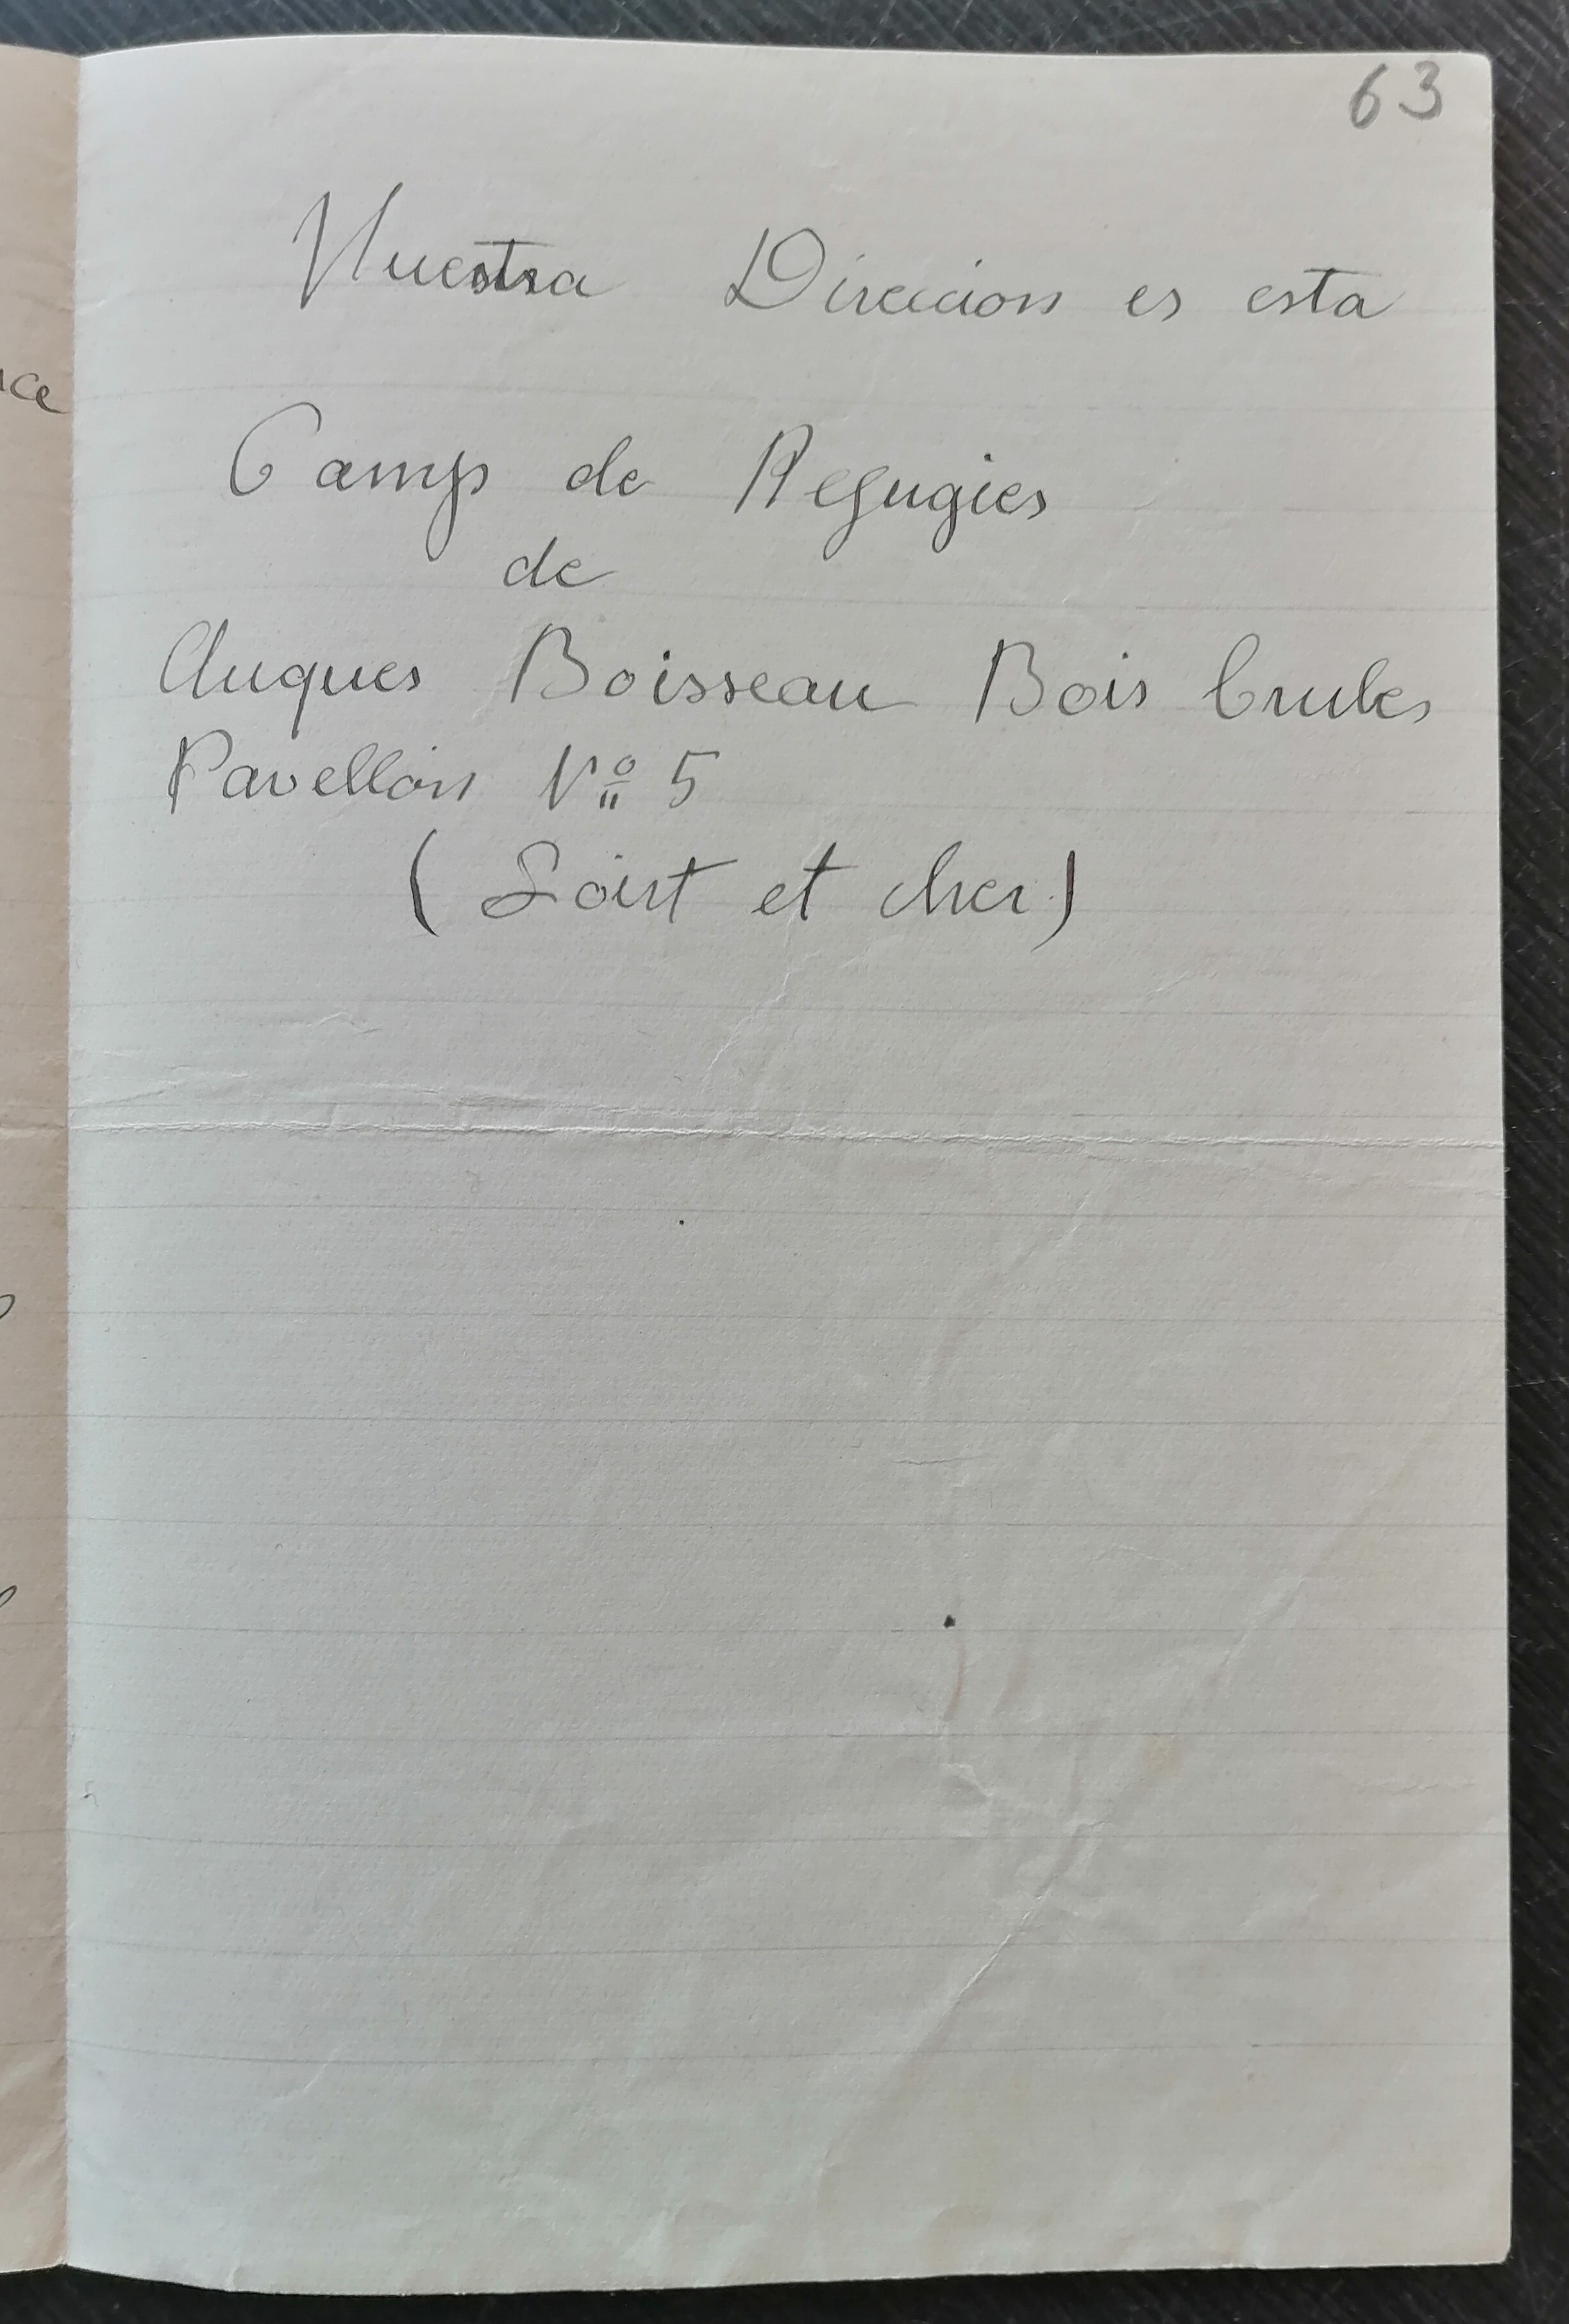 63
Nuestra Direccion es esta
Camp de Refugies
de
Auques Boisseau Bois brules
Pavellón Nº 5
(Loirt et cher)